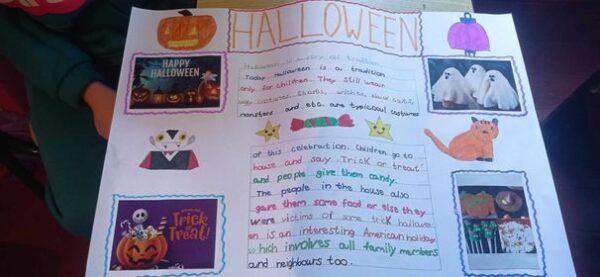 HALLOWEEN
HAPPY
HALLOWEEN
Halloween is a very old tradition.
Today Halloween is a tradition
only for children. They still wear
costumes. Ghosts, witches, black cats,
monsters and etc. are typical costumes
of this celebration. Children go to
house and say "Trick or treat"
and people give them candy.
The people in the house also
gave them some food or else they
were victims of some trick hallowe
en is an interesting American holiday
which involves all family members
and neighbours too.
Trick
Treat!